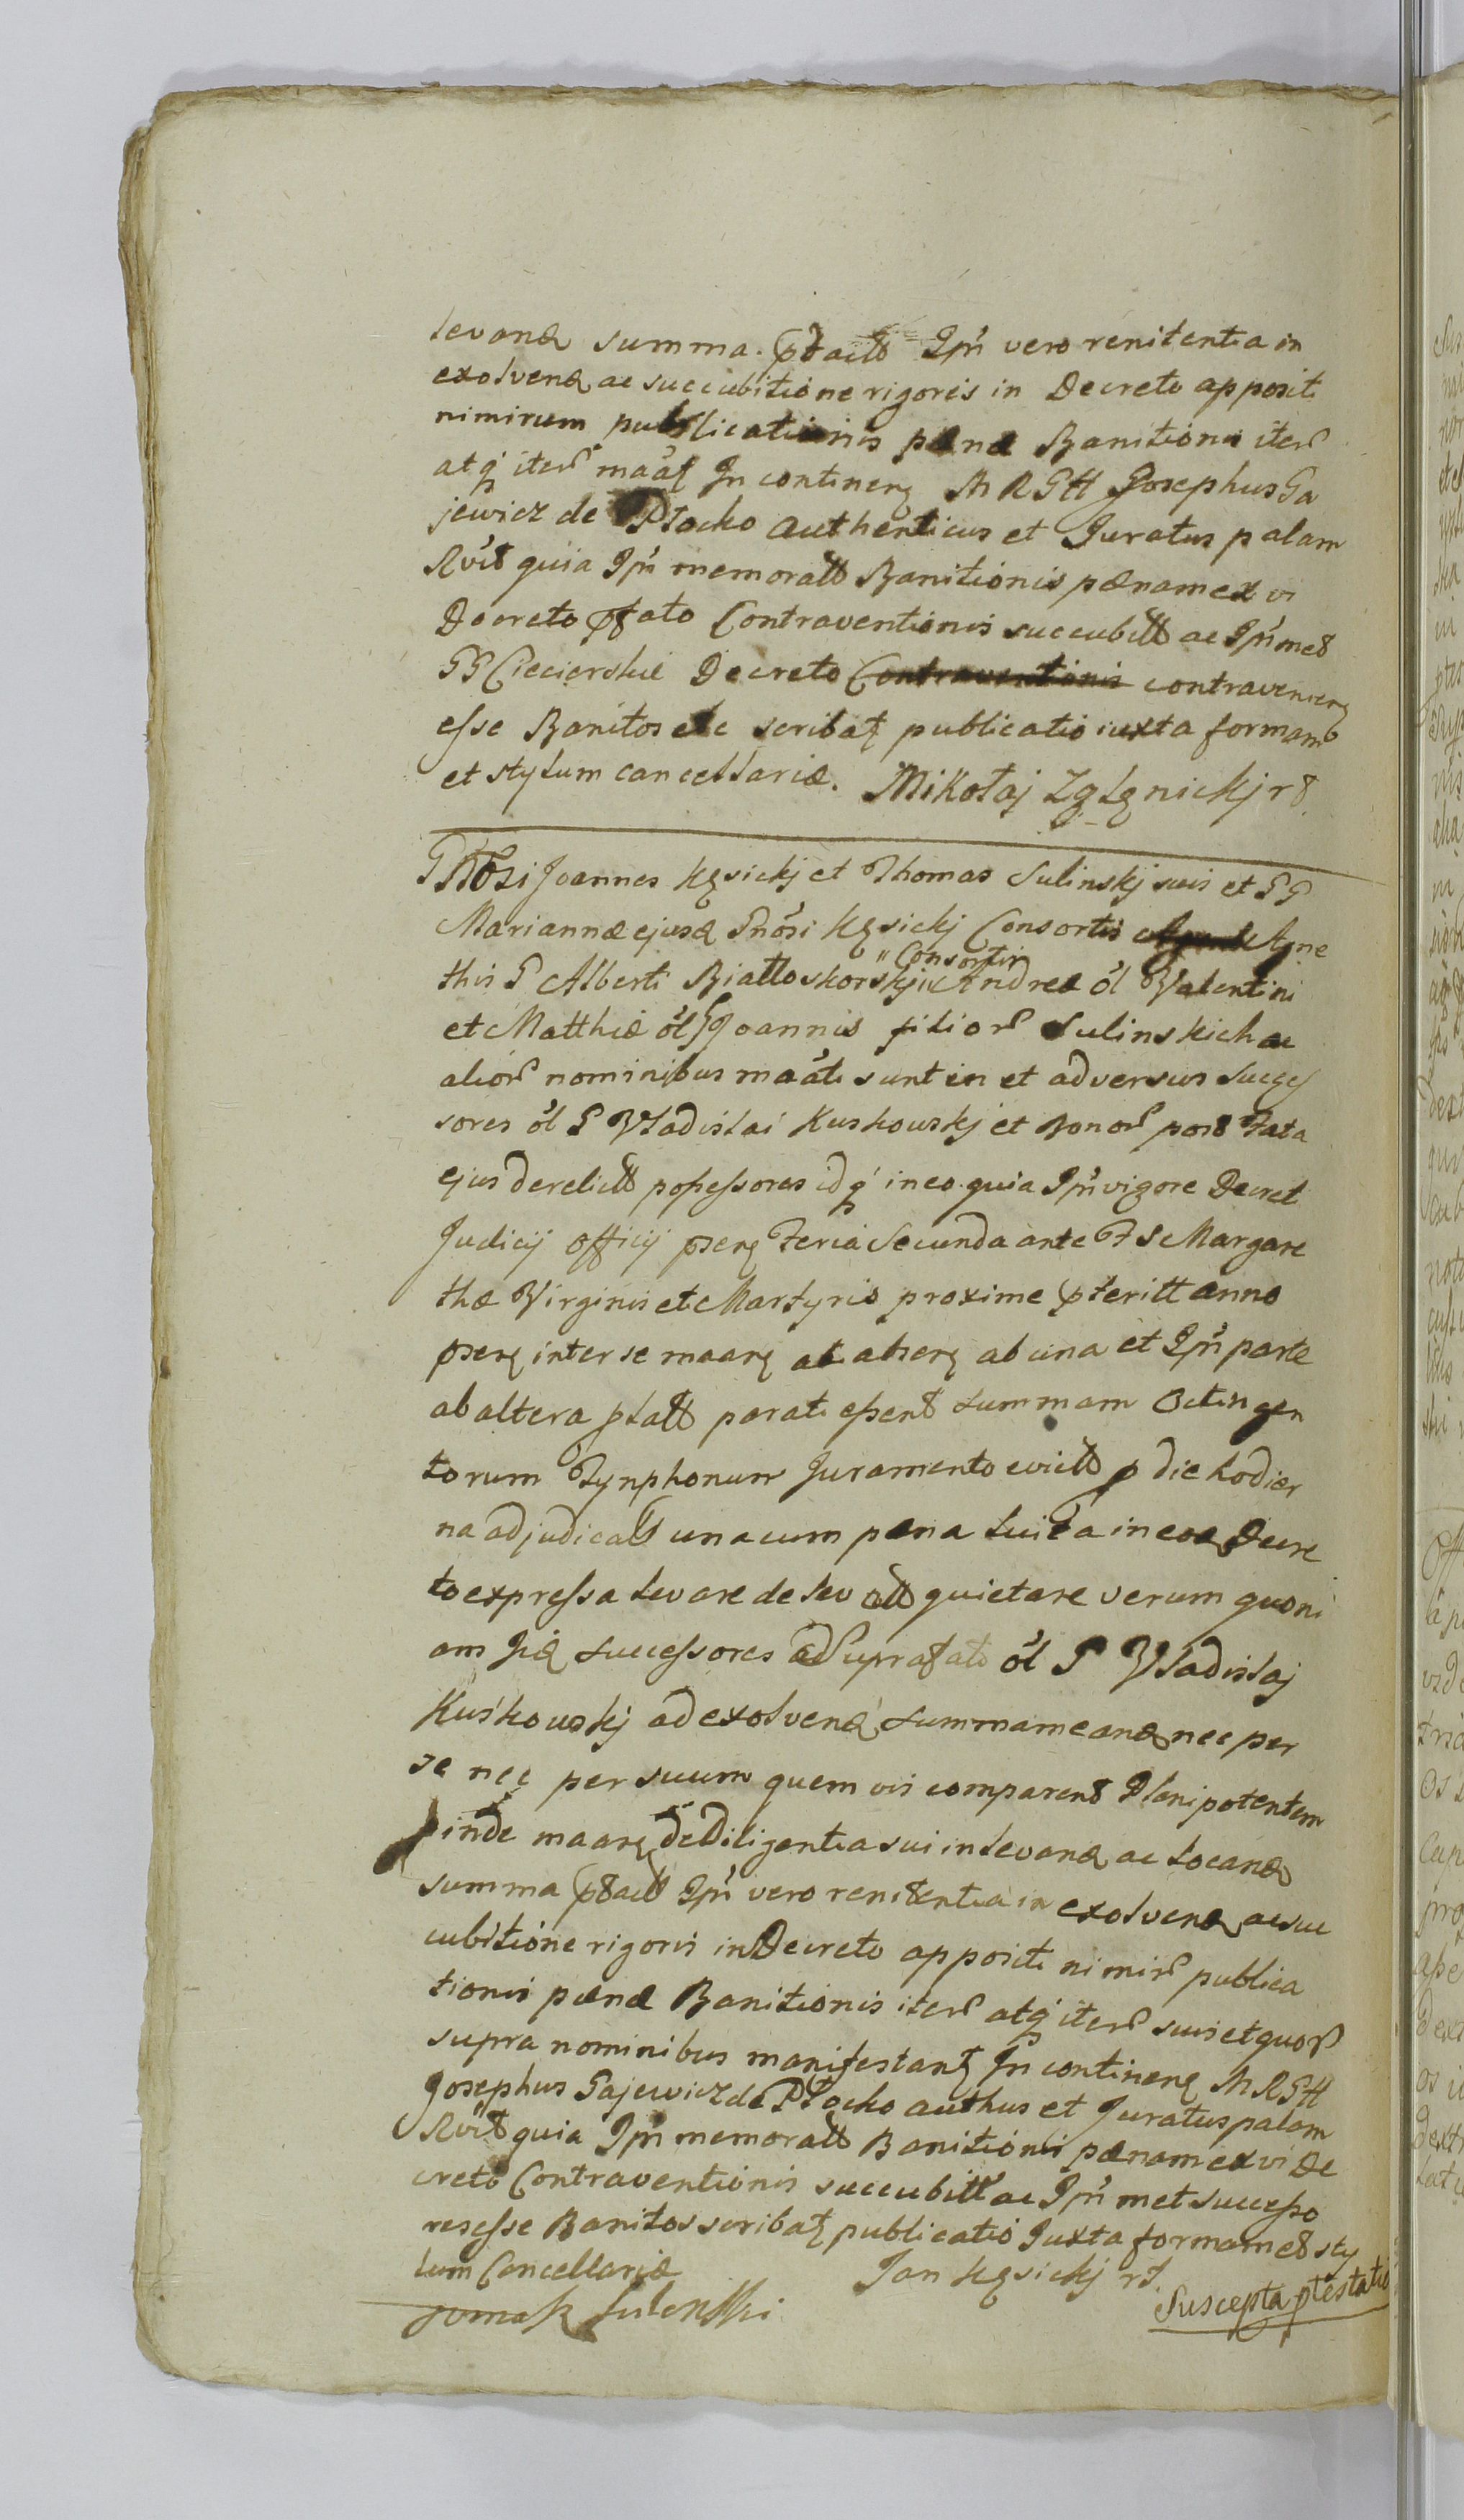 levand summa. ptactt Ipsi vero renitentia in
exolvend ac succubitione rigoris in Decreto appositi
nimirum publicationis pænæ Banitionis iter
atq iter maat In continen M R G H Josephus Ga
jewicz de Płocko authenticus et Juratus palam
Rvit quia Ipsi memoratt Banitionis pænam ex vi
Decreto pfato Contraventionis succubitt ac Ipsimet
GG Ciecierskie Decreto Contraventionis contravenien
esse Banitos etc scribat publicatio iuxta formam
et stylum cancellariæ. Mikołaj Zglęnickj
Gnosi Joannes Kęsickj et Thomas Sulinskj suis et GG
Mariannæ ejusd Gnosi Kęsickj Consortis Agne
this G Alberti Białłoskorskj Consortis Andreæ ol Valentini
et Matthiæ ol G Joannis filior Sulinskich ac
alior nominibus maati sunt in et adversus Succes
sores ol G Vladislai Kuskowskj et Bonor post Fata
ejus derelictt possessores idq in eo quia Ipsi vigore Decret
Judicij Officij psen Feria Secunda ante F S Margare
thæ Virginis et Martyris proxime pteritt anno
psen inter se maan ab una et Ipsi parte
ab altera platt parati essent summam Octingen
torum Tynphonum Juramento evictt p die hodier
na adjudicatt una cum pæna luita in eod Decre
to expressa levare de levatt quietare verum quoni
am successores Suprafati ol G Vladislaj
Kuskowskj ad exolvend summam eand nec per
se nec per suum quem vis comparent Plenipotentem
pinde maan de Diligentia sui in levand ac locand
summa ptactt Ipsi vero renitentia in exolvend ac suc
cubitione rigoris in Decreto appositi nimir publica
tionis pænæ Banitionis iter atq iter suis et quor
supra nominibus manifestant In continen M R G H
Josephus Gajewicz de Płocko authus et Juratus palam
Rvit quia Ipsi memoratt Banitionis pænam ex vi De
creto Contraventionis succubitt ac Ipsimet successo
res esse Banitos scribat publicatio Juxta formam et sty
lum Cancellariæ Jan Kęsickj
Tomasz Sulenski Suscepta ptestatio